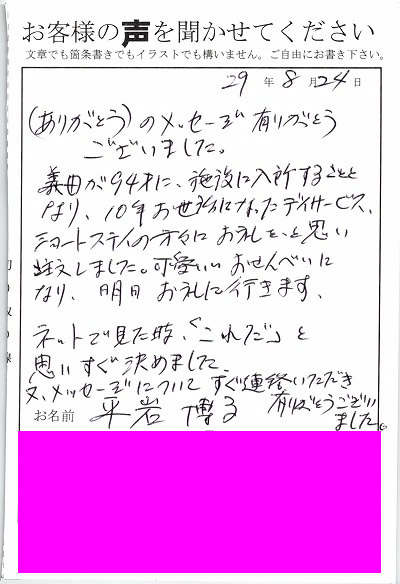 お客様の声を聞かせてください
文章でも箇条書きでもイラストでも構いません。ご自由にお書き下さい。
29年8月24日
(ありがとう)のメッセージ有りがとう
ございました。
義母が94才に、施設に入所することと
なり、10年お世話になったデイサービス、
ショートステイの方々にお礼をと思い
注文しました。可愛いいおせんべいに
なり、明日お礼に行きます、
ネットで見た時、「これだ」と
思いすぐ決めました
又、メッセージについてすぐ連絡いただき
有りがとうござい
ました。
お名前 平岩
切り取り線